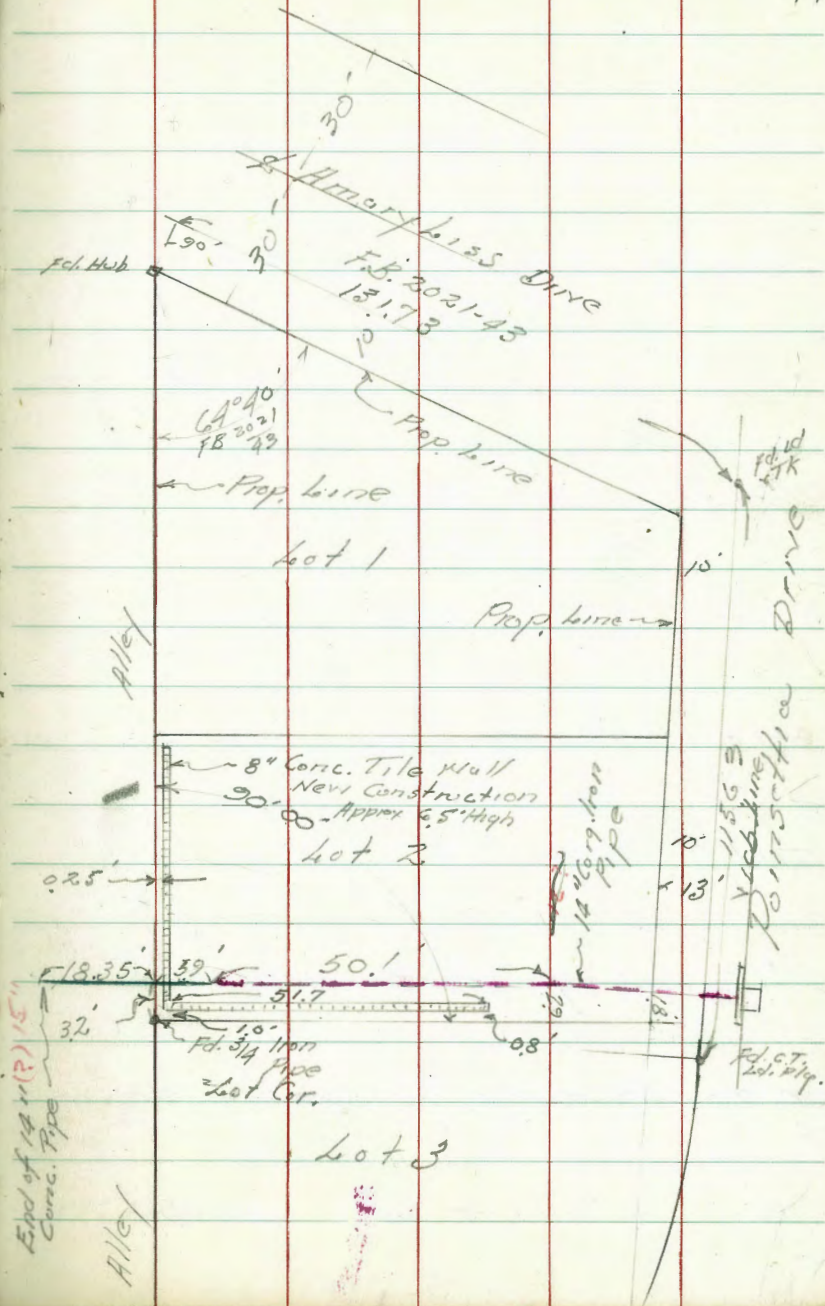 30'
℄ Amaryliss Drive
30'
L 90°
F.B. 2021-43
131.73
Fd. Hub
10'
64°40'
FB 2021
43
Prop. Line
Prop. Line
Fd. Ld
+TK
Lot 1
10'
Prop. Line
Poinsettia Drive
Alley
8" Conc. Tile Wall
New Construction
Approx 6.5' High
90°00'
Lot 2
14" Corg. Iron
Pipe
115.63
10'
13'
0.25'
18.35'
3.9'
50.1'
51.7
3.2'
1.0'
2.9'
1.8'
0.8'
Fd. 3/4 Iron
Pipe
Lot Cor.
Fd. C.T.
Ld. Plg.
End of 14"(?) 15"
Conc. Pipe
Lot 3
Alley